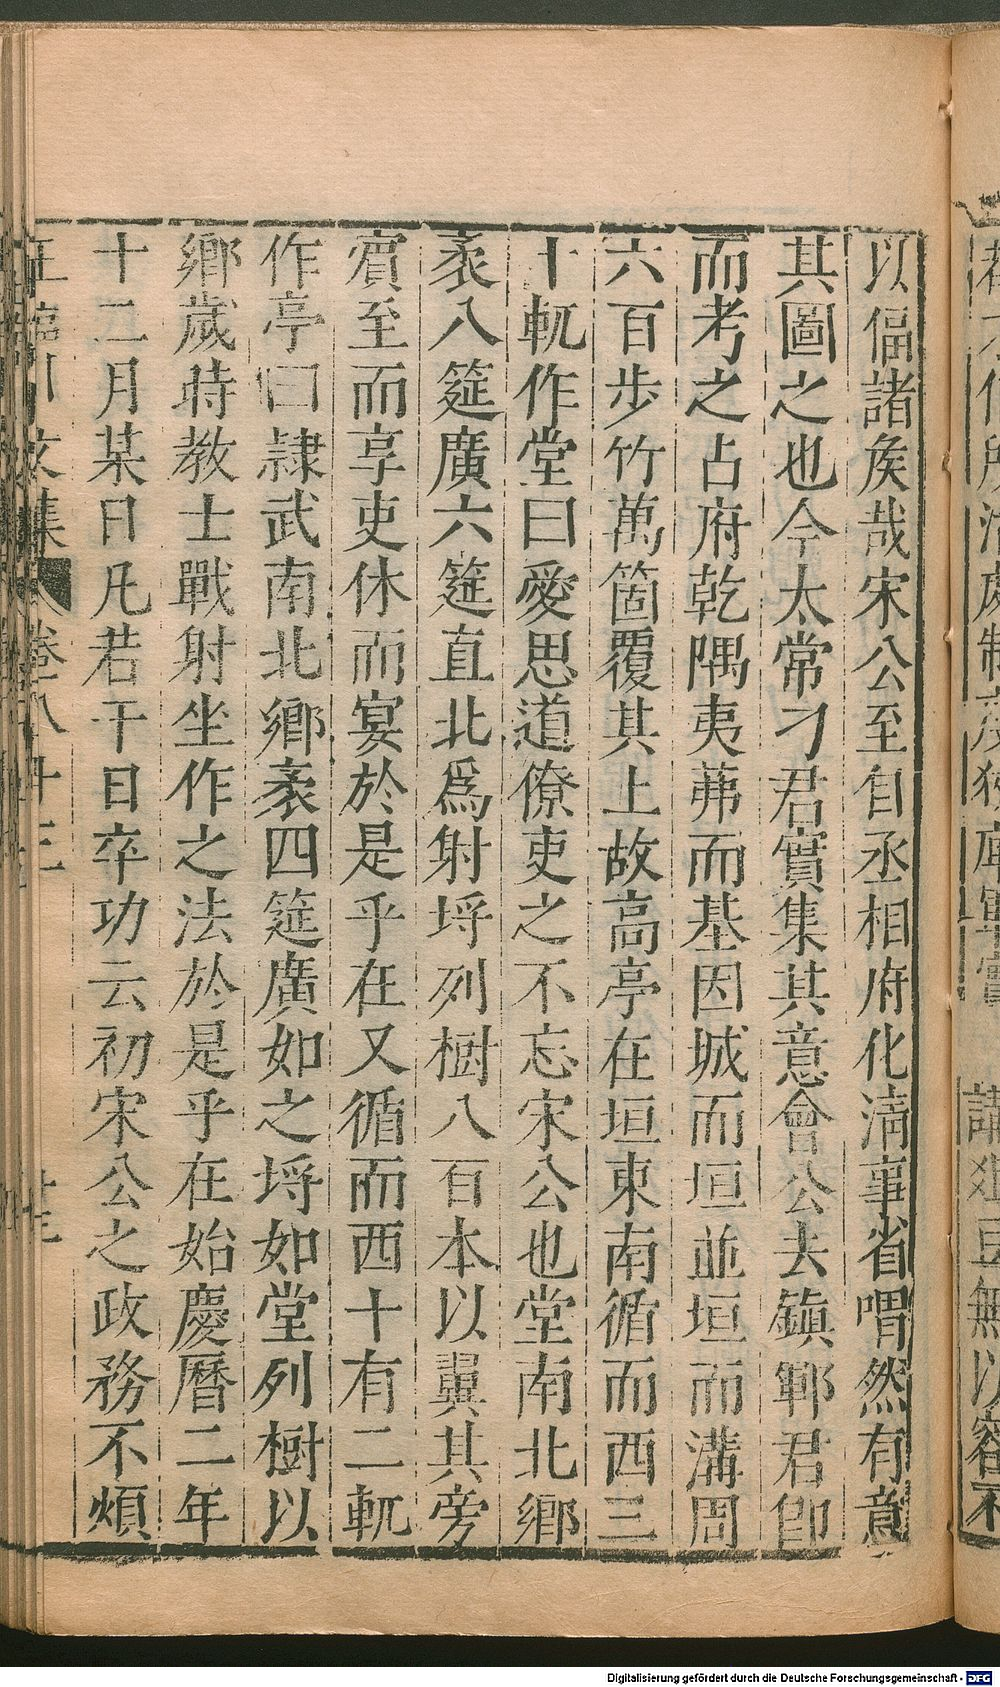 以偪諸矦哉宋公至自丞相府化清事省喟然有意
其圖之也今太常刁君實集其意會公去鎮鄆君卽
而考之占府乾隅夷茀而基因城而垣並垣而溝周
六百步竹萬箇覆其上故高亭在垣東南循而西三
十軏作堂曰愛思道僚吏之不忘宋公也堂南北鄉
袤八筵廣六筵直北爲射埒列樹八百本以翼其旁
賔至而享吏休而宴於是乎在又循而西十有二軏
作亭曰隷武南北鄉袤四筵廣如之埒如堂列樹以
鄉歲時教士戰射坐作之法於是乎在始慶曆二年
十二月某日凡若干日卒功云初宋公之政務不煩
王臨川文集 卷八十三
Digitalisierung gefördert durch die Deutsche Forschungsgemeinschaft - DFG